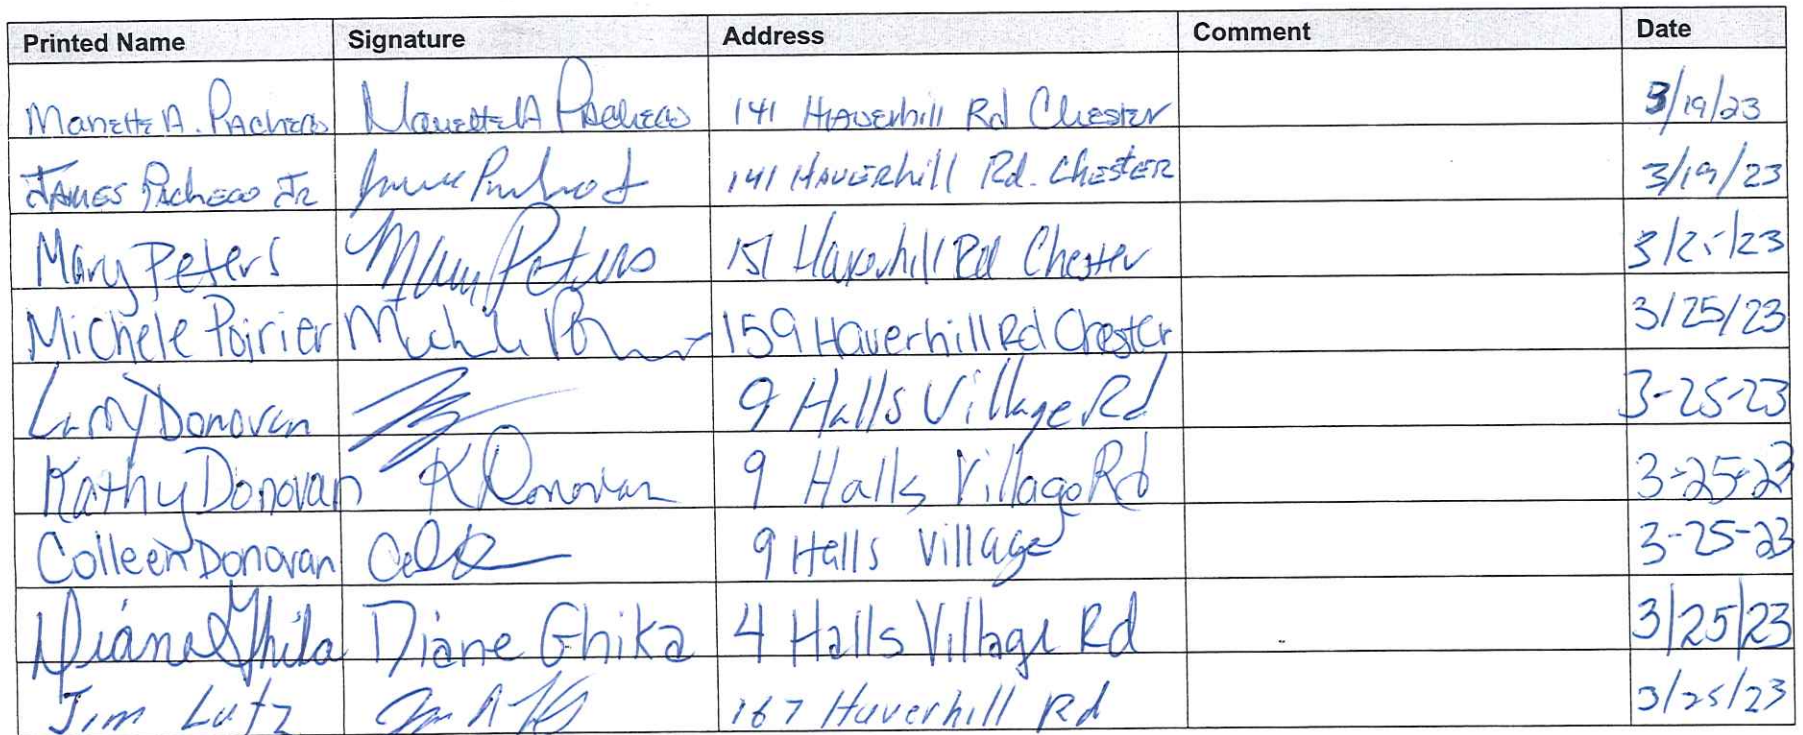 Printed Name Signature Address Comment Date
Manette A. Pacheco Manette A Pacheco 141 Haverhill Rd Chester 3/19/23
James Pacheco Jr 141 Haverhill Rd. Chester 3/19/23
Mary Peters Mary Peters 151 Haverhill Rd Chester 3/25/23
Michele Poirier 159 Haverhill Rd Chester 3/25/23
Larry Donovan 9 Halls Village Rd 3-25-23
Kathy Donovan K Donovan 9 Halls Village Rd 3-25-23
Colleen Donovan 9 Halls Village 3-25-23
Diane Ghika Diane Ghika 4 Halls Village Rd 3/25/23
Jim Lutz 167 Haverhill Rd 3/25/23